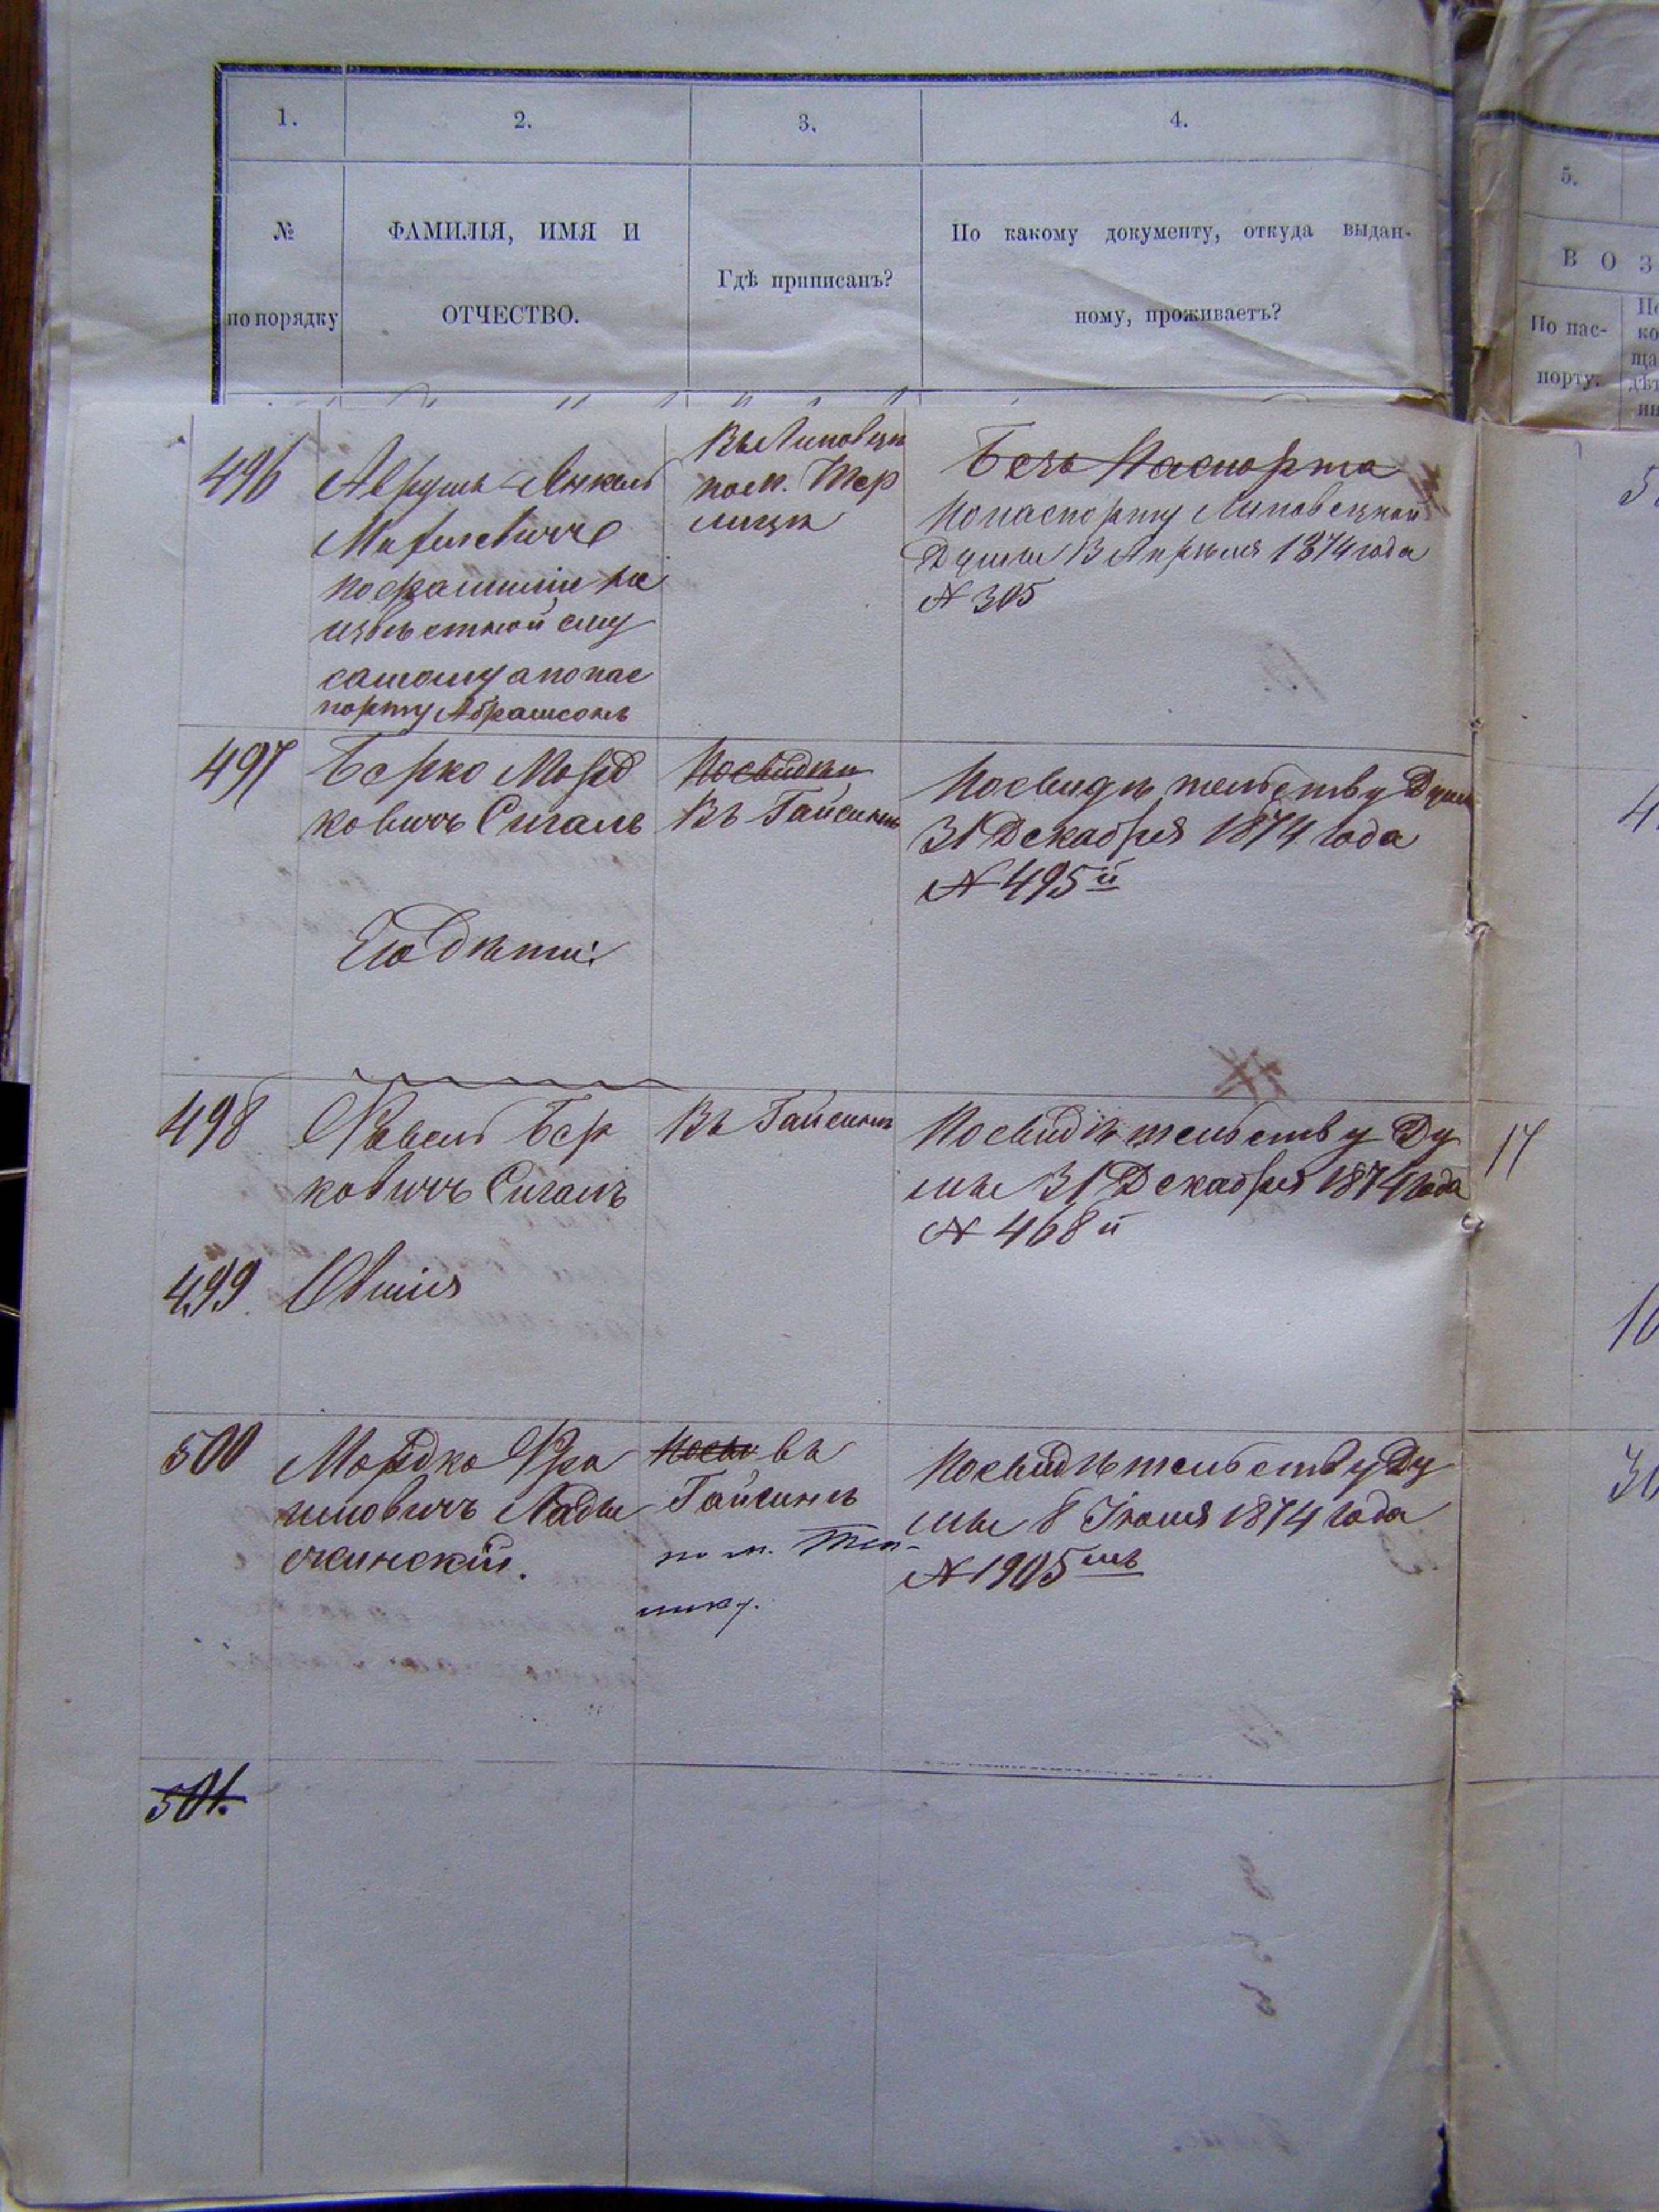 1.
2.
3.
4.
5.
№
по порядку
ФАМИЛІЯ, ИМЯ И
ОТЧЕСТВО.
Гдѣ приписанъ?
По какому документу, откуда выдан-
ному, проживаетъ?
В О З
По пас-
порту.
496
Аврумъ-Янкель
по фамиліи не
извѣстной ему
самому а по пас
порту Абрамсонъ
Въ Липовцѣ
по м. Тер
лицѣ
Безъ Паспорта
По паспорту Липовецкой
Думы 13 Апрѣля 1874 года
№ 305
497
Берко Морд
ковичъ Сигалъ
Его дѣти:
Въ Гайсинѣ
По свидѣтельству Думы
31 Декабря 1874 года
№ 495й
498
Бер
ковичъ Сигалъ
Въ Гайсинѣ
По свидѣтельству Ду
мы 31 Декабря 1874 года
№ 468й
17
499
Овшія
500
Мордко Фро
имовичъ Лады
жинскій.
въ
Гайсинѣ
по м. Теп-
лику.
По свидѣтельству Ду
мы 8 Іюля 1874 года
№ 1905мъ
501.